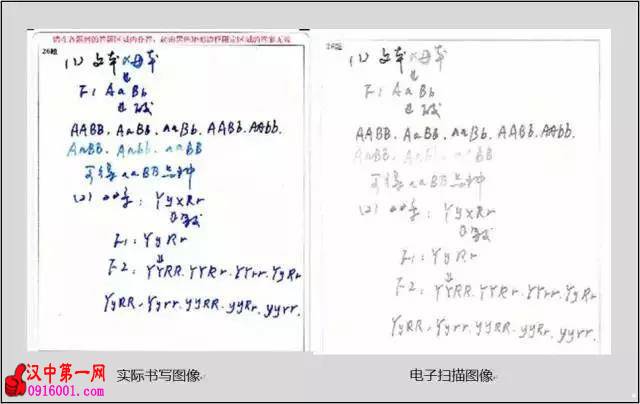 请在各题目的答题区域内作答，超出黑色矩形边框限定区域的答案无效
26题
(1)
F1: AaBb
AABB. AaBb. aaBb. AABb. AAbb.
AaBB. Aabb. aaBB
可得aaBB品种
(2) YyxRr
F1: YyRr
F2: YYRR. YYRr. YYrr. YyRr
YyRR. Yyrr. yyRR. yyRr. yyrr.
26题
(1)
F1: AaBb
AABB. AaBb. aaBb. AABb. AAbb.
AaBB. Aabb. aaBB
可得aaBB品种
(2) YyxRr
F1: YyRr
F2: YYRR. YYRr. YYrr. YyRr
YyRR. Yyrr. yyRR. yyRr. yyrr.
实际书写图像
电子扫描图像
汉中第一网
0916001.com